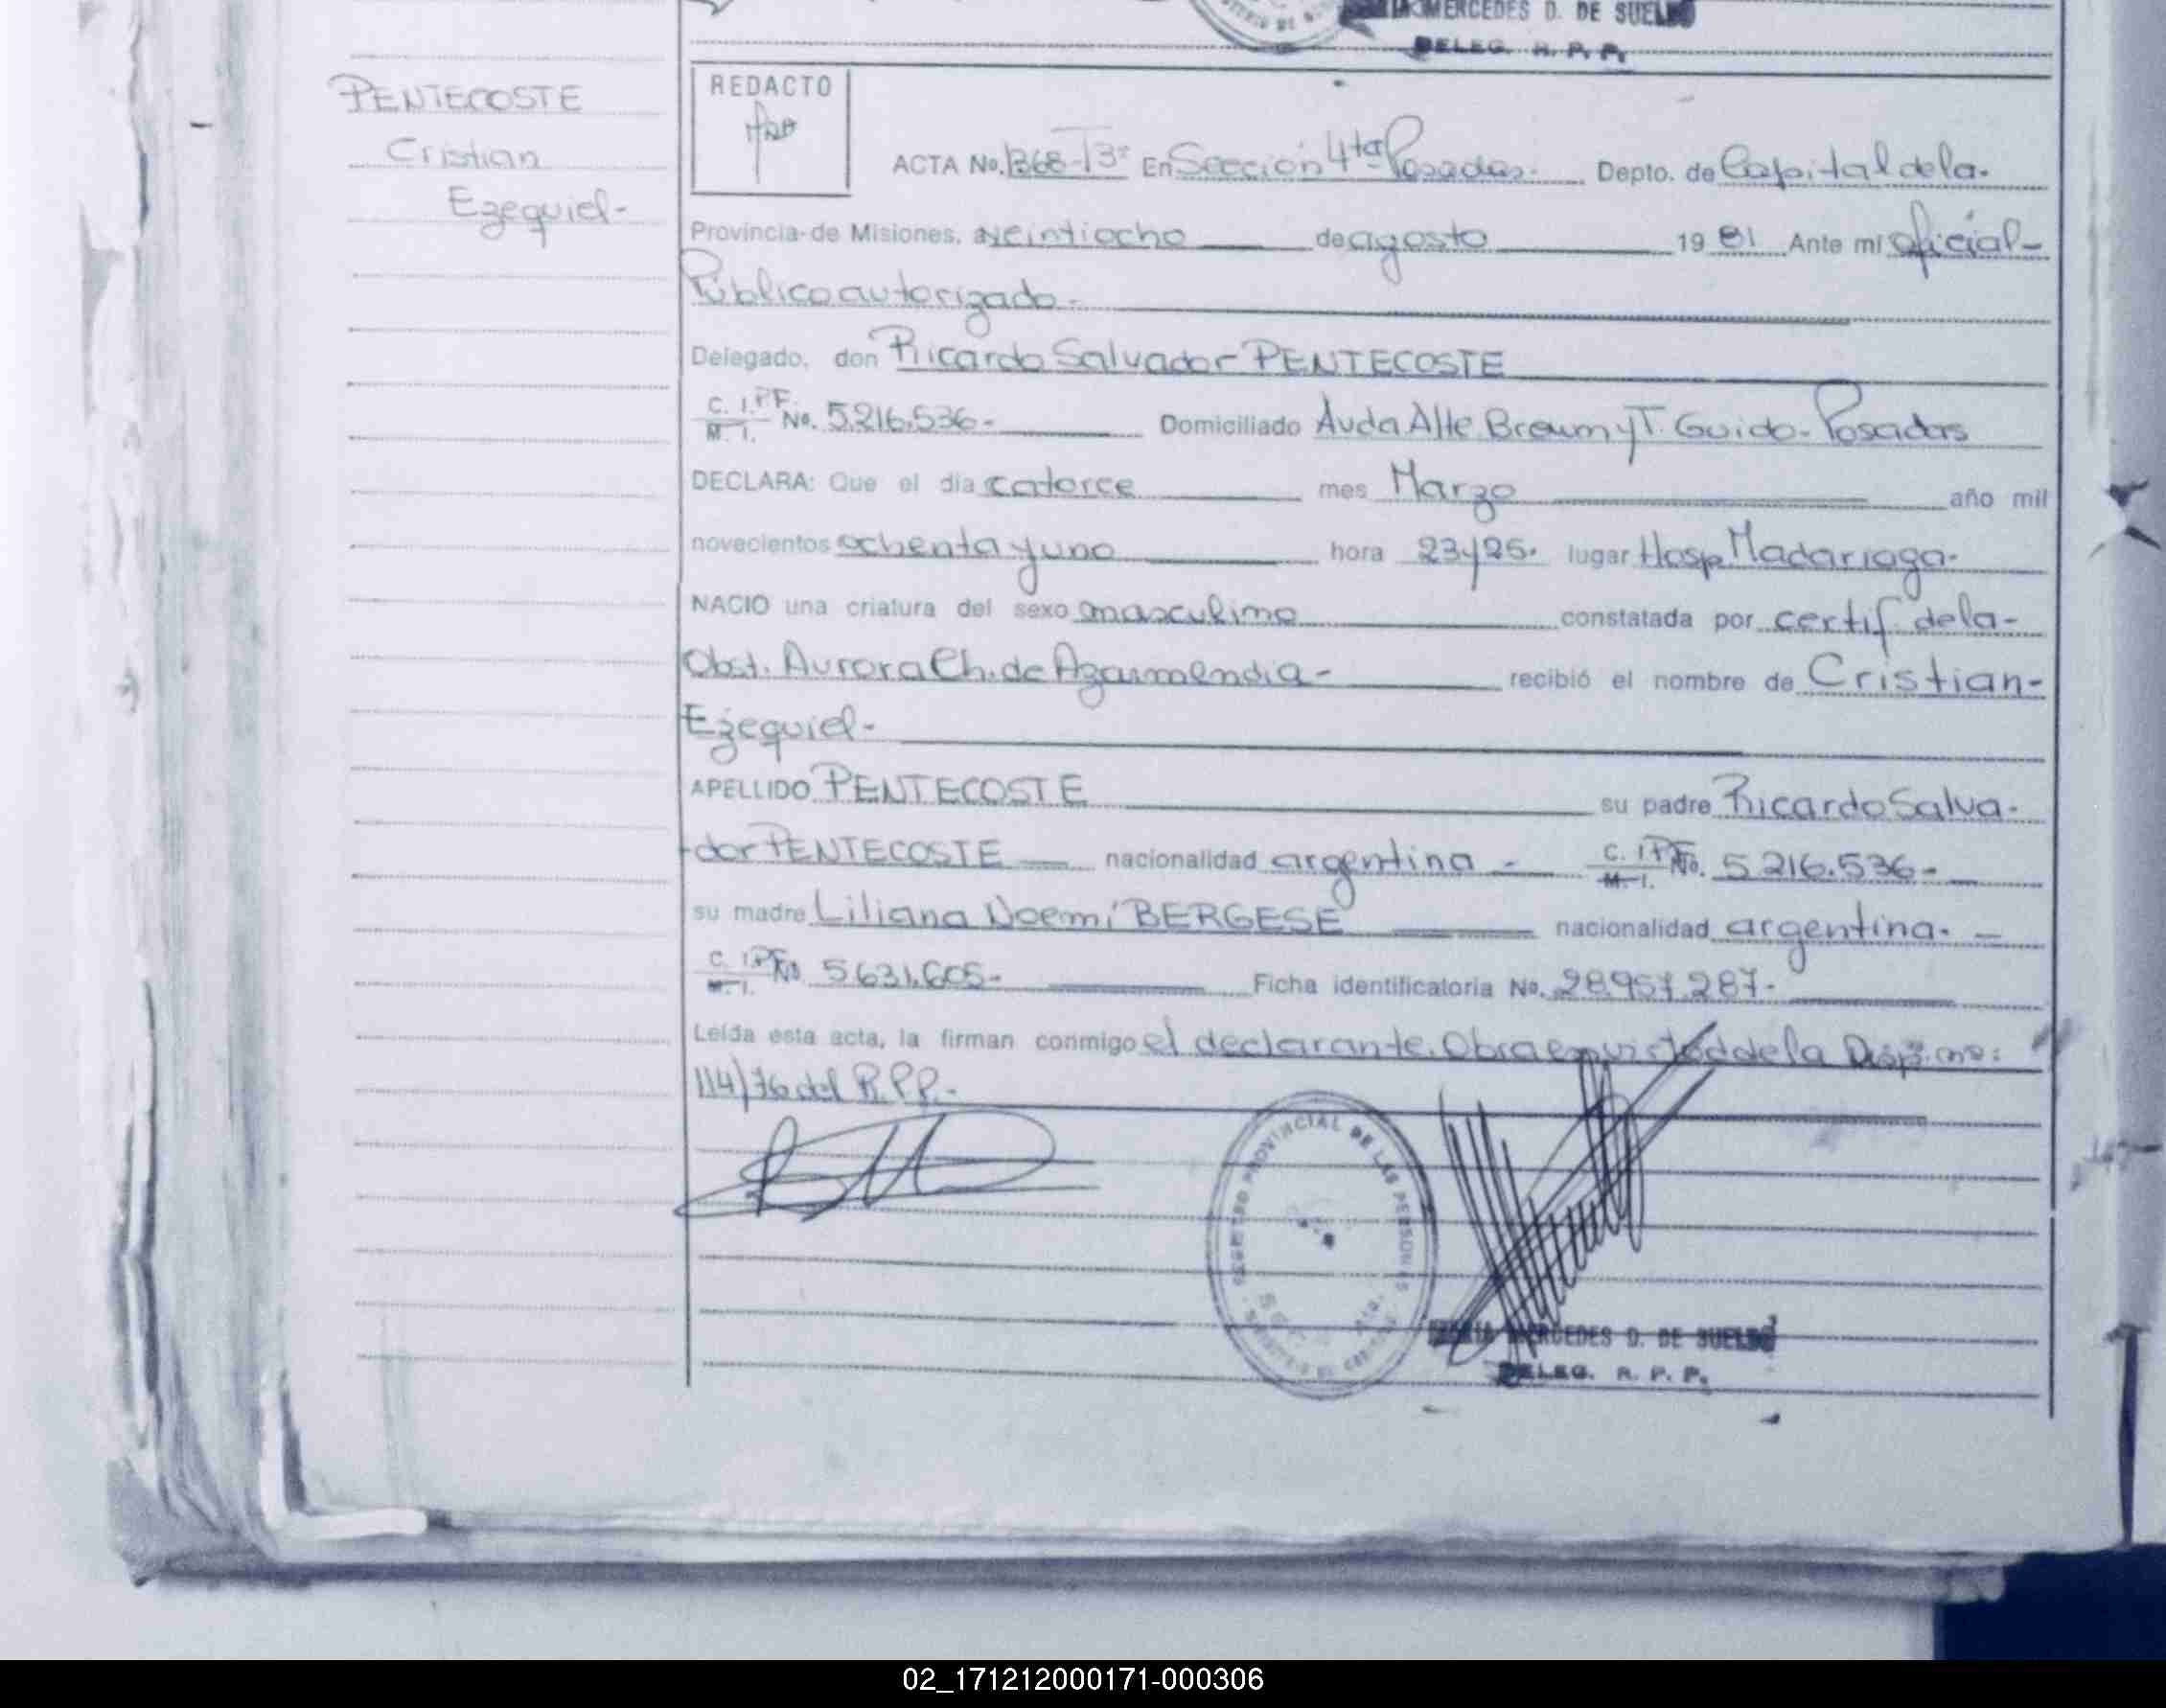 MERCEDES D. DE SUELDO
DELEG. R. P. P.
PENTECOSTE
Cristian
Ezequiel-
REDACTO
ACTA No. 1368-T3º En Sección 4ta Posadas. Depto. de Capital de la-
Provincia de Misiones, a veintiocho de agosto 19 81 Ante mi oficial-
Público autorizado-
Delegado, don Ricardo Salvador PENTECOSTE
C. I. P F. M. I. No. 5.216.536- Domiciliado Avda Alte Brown y T. Guido- Posadas
DECLARA: Que el día catorce mes Marzo año mil
novecientos ochenta y uno hora 23y25. lugar Hosp. Madariaga-
NACIO una criatura del sexo masculino constatada por certif de la-
Obst. Aurora Ch. de Azarmendia- recibió el nombre de Cristian-
Ezequiel-
APELLIDO PENTECOSTE su padre Ricardo Salva-
dor PENTECOSTE nacionalidad argentina - C. I. P F. M. I. No. 5.216.536-
su madre Liliana Noemí BERGESE nacionalidad argentina. -
C. I. P F. M. I. No. 5.631.605- Ficha identificatoria No. 28.957.287-
Leída esta acta, la firman conmigo el declarante. Obra en virtud de la Disp. nº:
114/76 del R.P.P.-
REGISTRO PROVINCIAL DE LAS PERSONAS
MERCEDES D. DE SUELDO
DELEG. R. P. P.
02_171212000171-000306